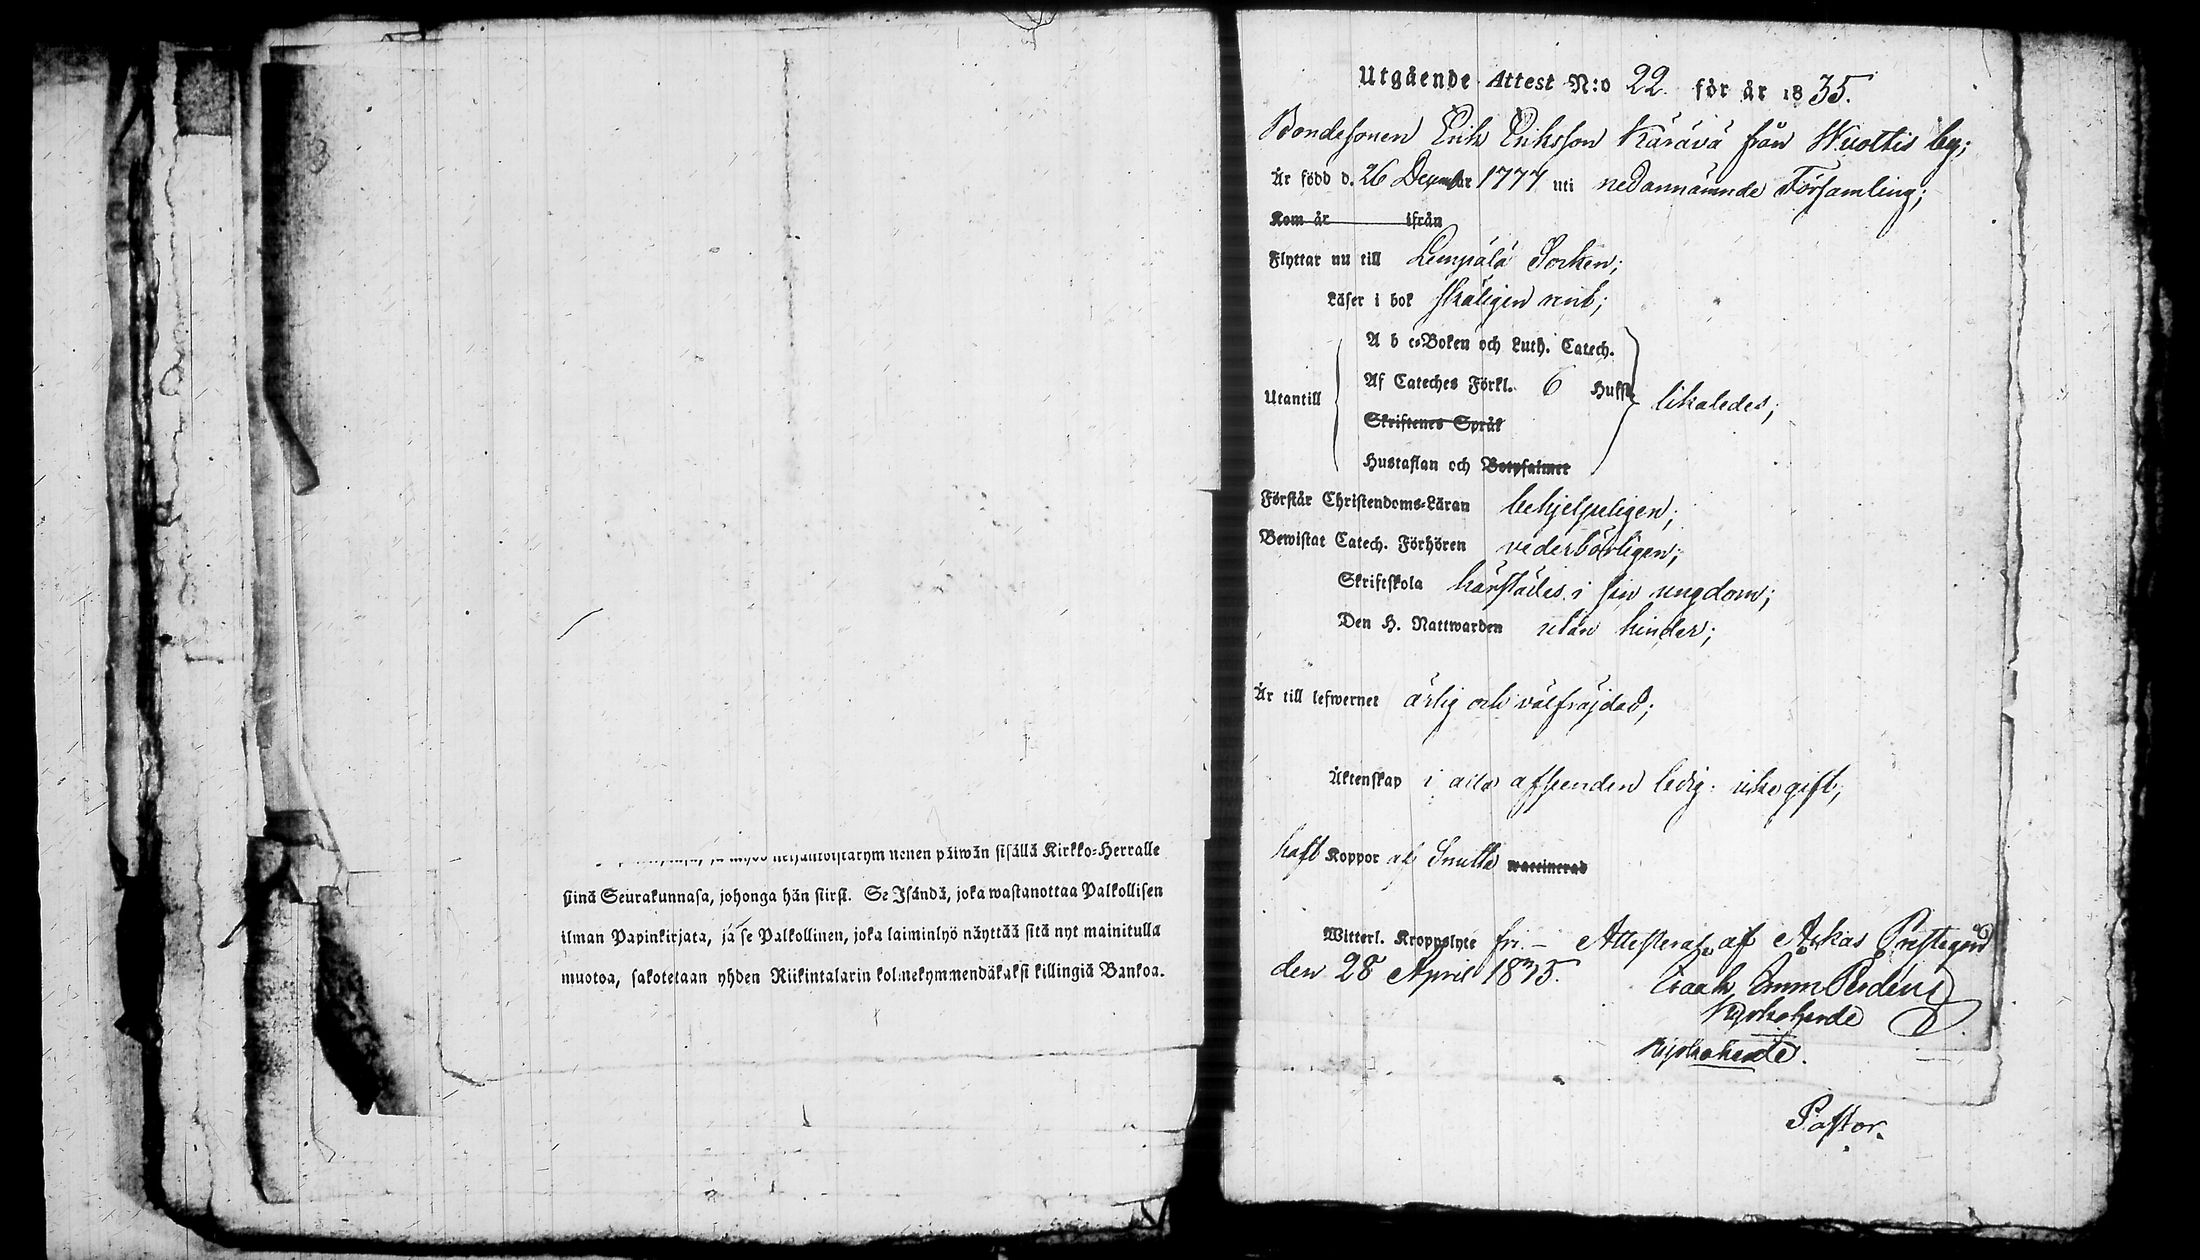 nenen päiwän sisällä Kirkko-Herralle
siinä Seurakunnasa, johonga hän siirst. Se Isändä, joka wastanottaa Palkollisen
ilman Papinkirjata, ja se Palkollinen, joka laiminlyö näyttää sitä nyt mainitulla
muotoa, sakotetaan yhden Riikintalarin kolmekymmendäkaksi killingiä Bankoa.
Utgående Attest N:o 22. för år 1835.
Bondesonen Erik Eriksson Kärävä från Wuottis by;
Är född d. 26 December 1777 uti nedannämnde Församling;
Kom år ifrån
Flyttar nu till Lempälä Socken;
Läser i bok skäligen rent;
Utantill
A b c-Boken och Luth. Catech.
Af Cateches Förkl. 6 Hufst.
Skriftenes Språk
Hustaflan och Botpsalmer
likaledes;
Förstår Christendoms-Läran behjelpeligen;
Bewistat Catech. Förhören vederbörligen;
Skriftskola härstädes i sin ungdom;
Den H. Nattwarden utan hinder;
Är till lefwernet ärlig och välfräjdad;
Äktenskap i alla afseenden ledig: icke gift,
haft Koppor waccinerad
Witterl. Kroppslyte fri. – Attesteras af Prestegård
den 28 April 1835.
Isaak Emm
Kyrkoherde
Kyrkoherde.
Pastor.